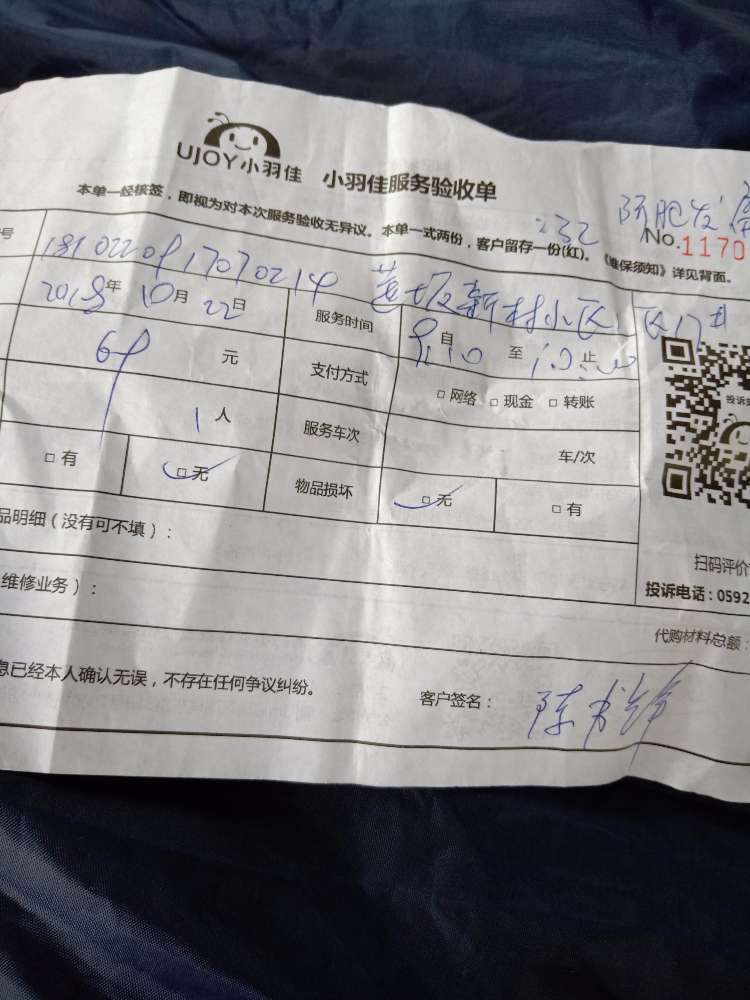 UJOY小羽佳 小羽佳服务验收单
本单一经核签，即视为对本次服务验收无异议。本单一式两份，客户留存一份(红)。《维保须知》详见背面。
232
No.1170
号
2018年10月22日
服务时间
自9:10至10:00止
69元
支付方式
□网络 □现金 □转账
1人
服务车次
车/次
□有 □无
物品损坏
□无 □有
品明细（没有可不填）：
维修业务）：
扫码评价
投诉电话：0592
代购材料总额：
息已经本人确认无误，不存在任何争议纠纷。
客户签名：